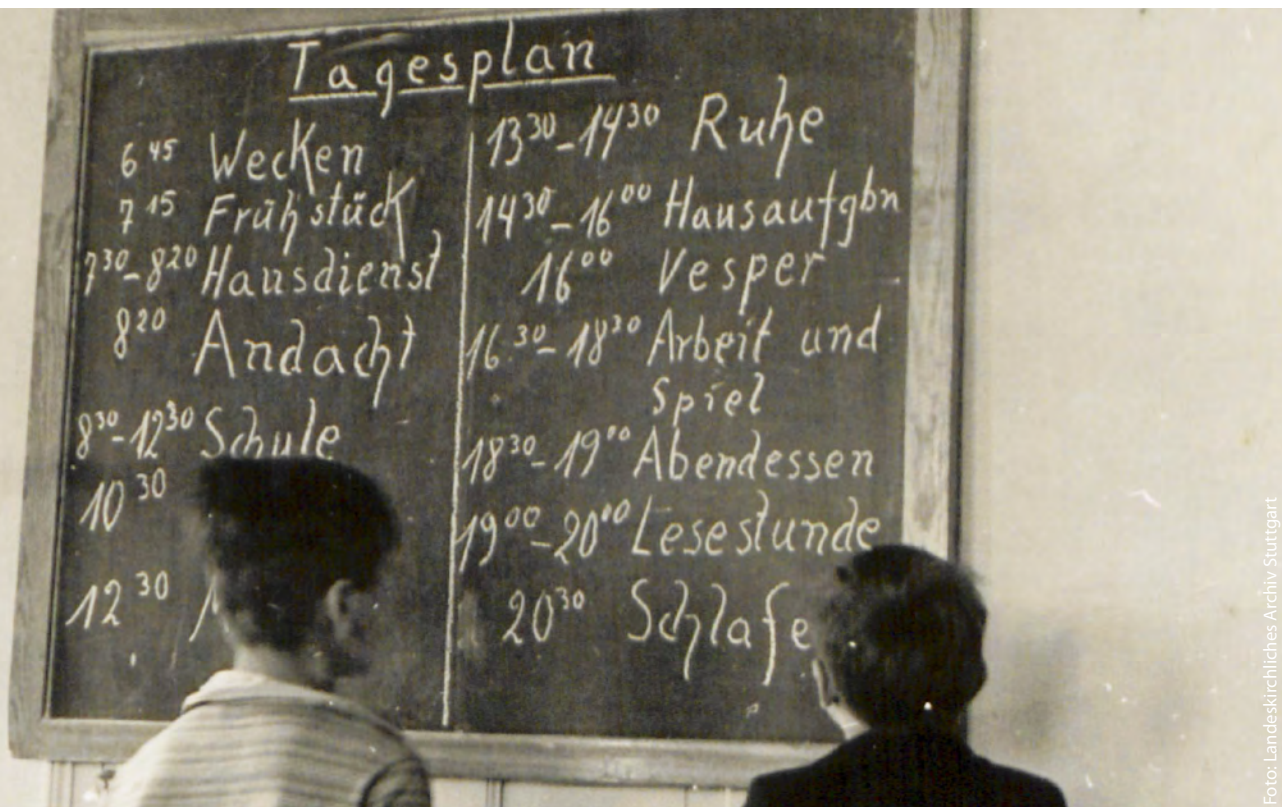 Tagesplan
6 45 Wecken
7 15 Frühstück
7 30-8 20 Hausdienst
8 20 Andacht
8 30-12 30 Schule
10 30
12 30
13 30-14 30 Ruhe
14 30-16 00 Hausaufgbn
16 00 Vesper
16 30-18 30 Arbeit und
Spiel
18 30-19 00 Abendessen
19 00-20 00 Lesestunde
20 30 Schlafe
Foto: Landeskirchliches Archiv Stuttgart